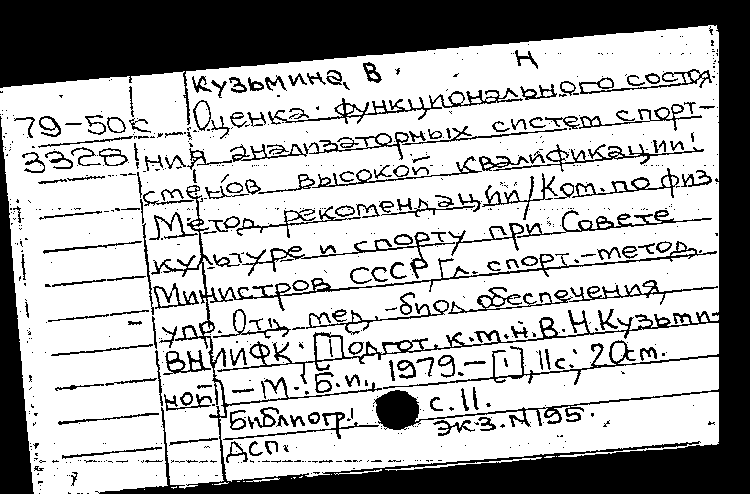 Кузьмина, В. Н
79-50с Оценка функционального состоя
3328 ния анализаторных систем спорт-
сменов высокой квалификации:
Метод. рекомендации/Ком. по физ.
культуре и спорту при Совете
Министров СССР, Гл. спорт.-метод.
упр. Отд. мед.-биол. обеспечения,
ВНИИФК. [Подгот. к.м.н. В.Н.Кузьми-
ной] - М.: Б.и., 1979. - [1], 11с.; 20см.
Библиогр.: с.11.
экз. N195.
ДСП.